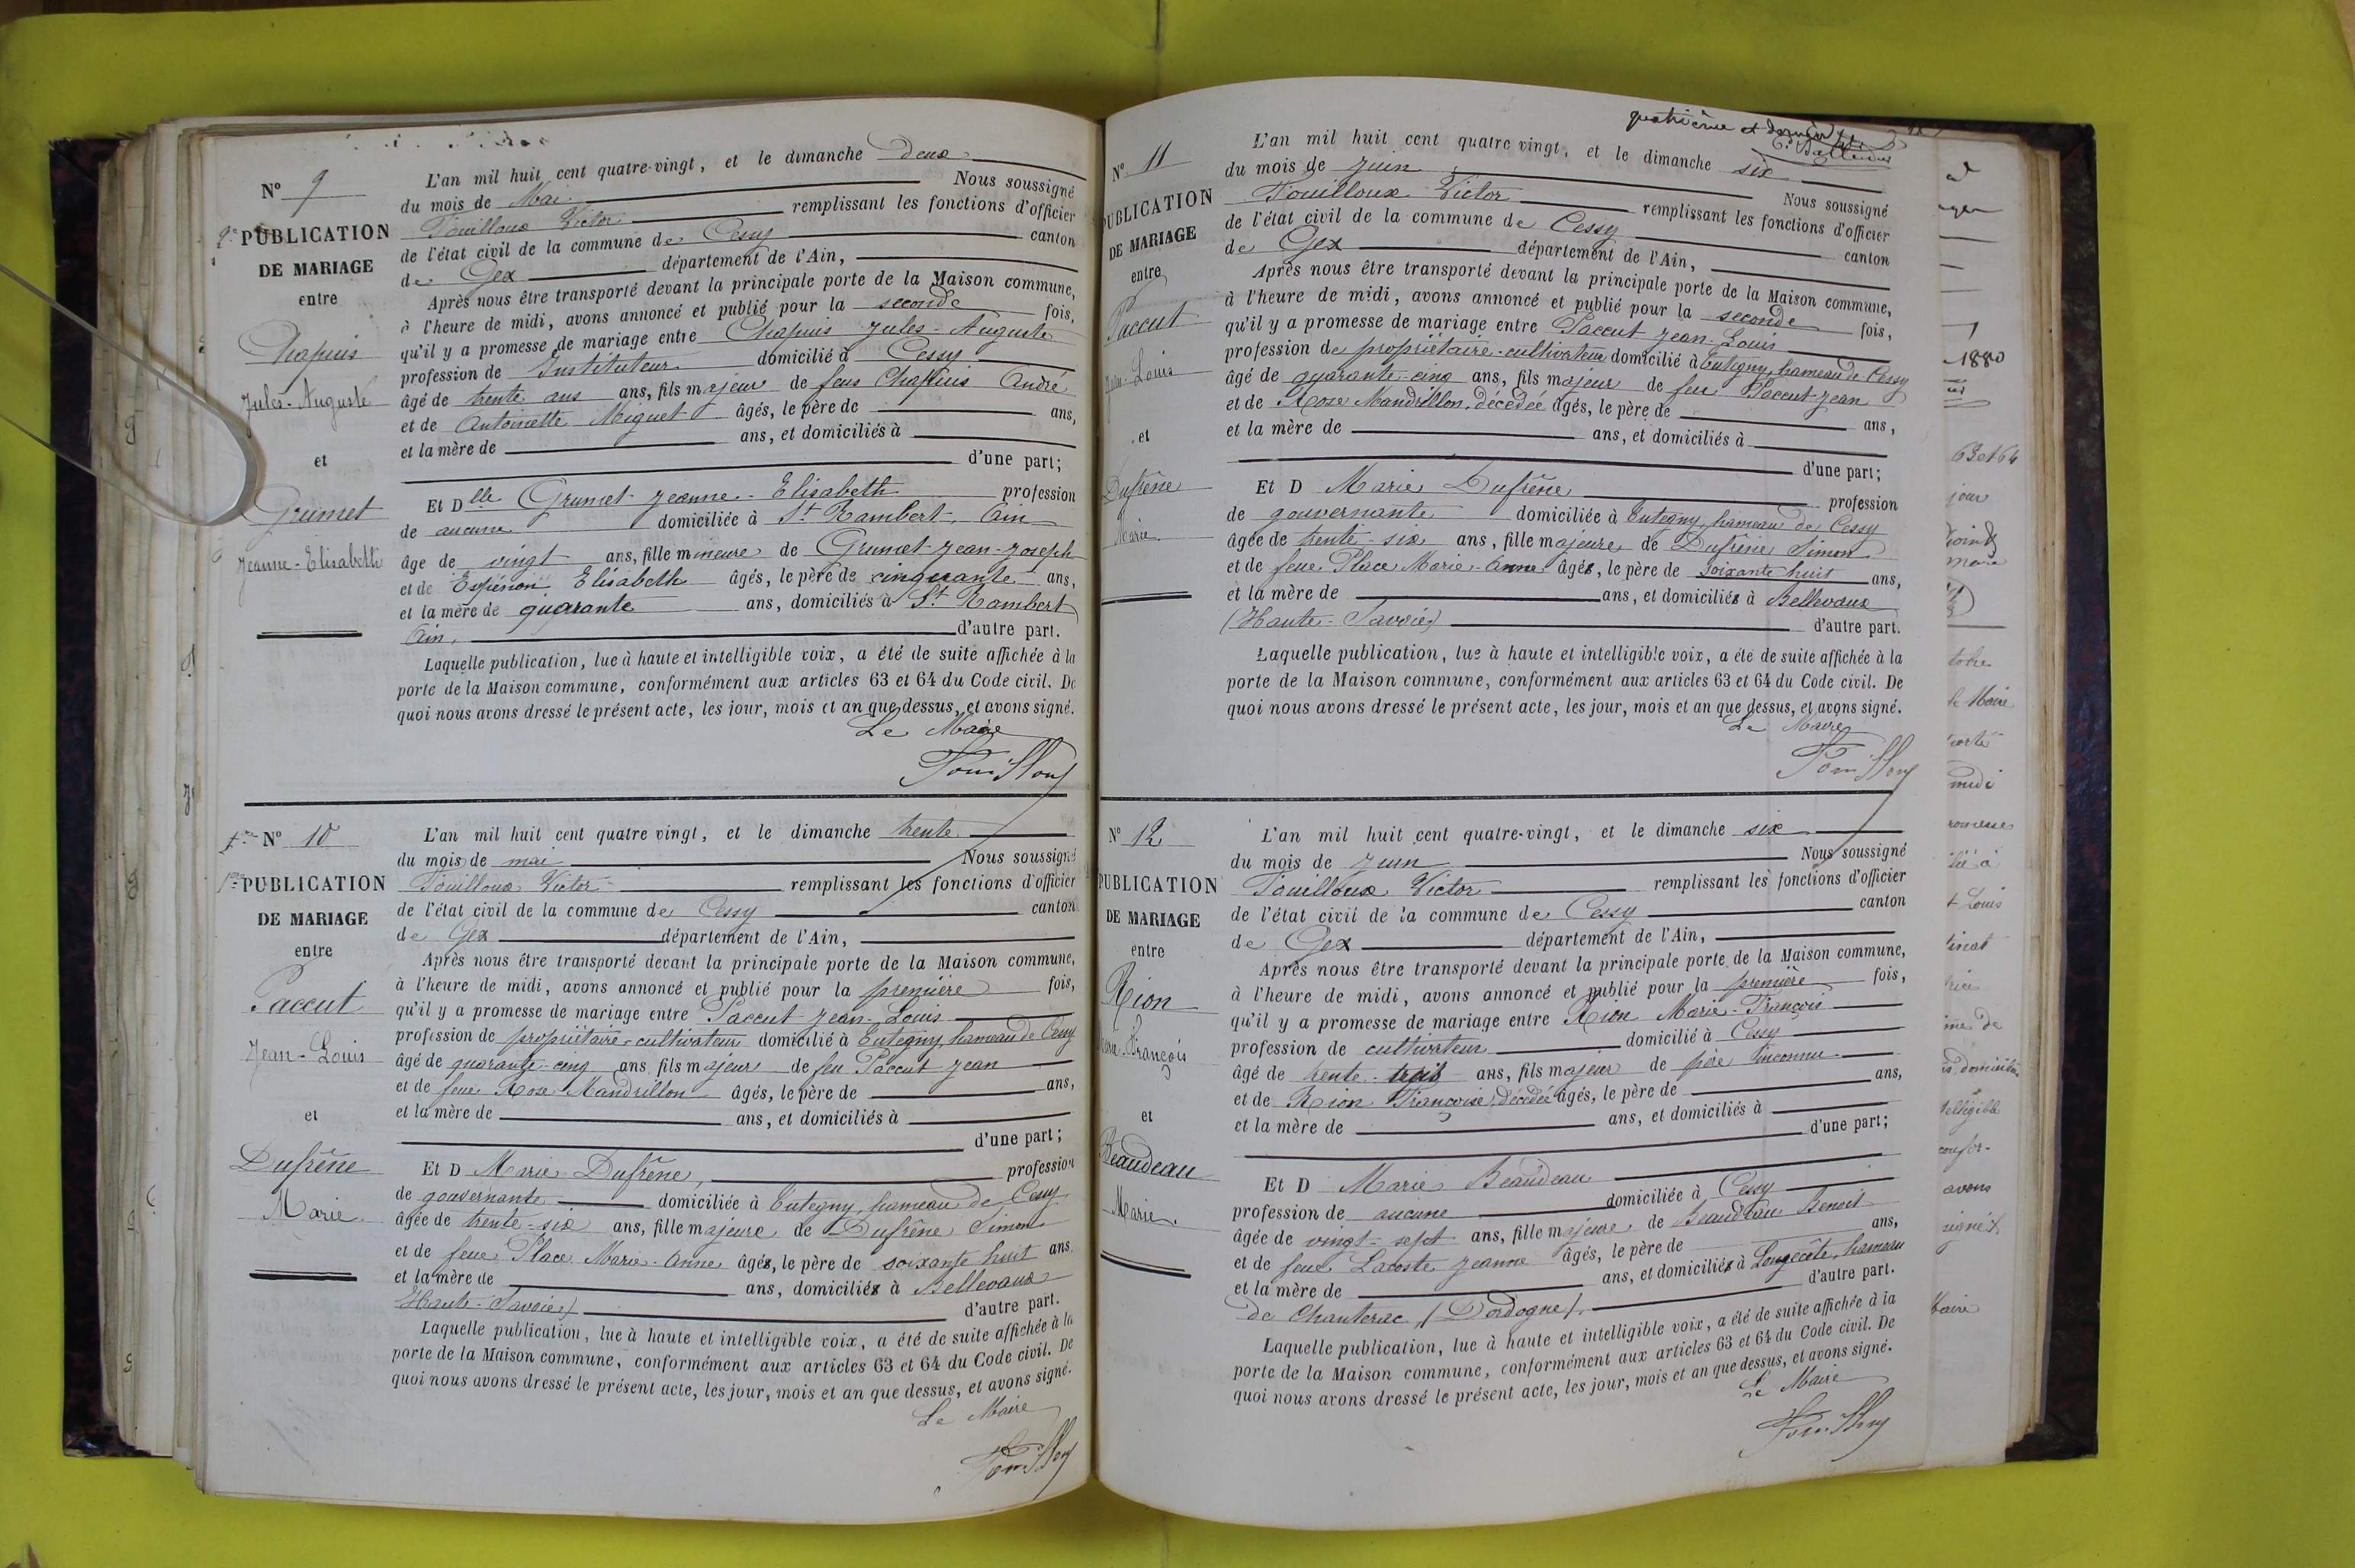 N° 9
2e PUBLICATION
DE MARIAGE
entre
Chapuis
Jules-Auguste
et
Grumet
Jeanne-Elisabeth
L'an mil huit cent quatre-vingt, et le dimanche deux
du mois de Mai Nous soussigné
Touilloux Victor remplissant les fonctions d'officier
de l'état civil de la commune de Cessy canton
de Gex département de l'Ain,
Après nous être transporté devant la principale porte de la Maison commune,
à l'heure de midi, avons annoncé et publié pour la seconde fois,
qu'il y a promesse de mariage entre Chapuis Jules-Auguste
profession de Instituteur domicilié à Cessy
âgé de trente ans ans, fils majeur de feus Chapuis André
et de Antoinette Miguet âgés, le père de ans,
et la mère de ans, et domiciliés à
d'une part;
Et Dlle Grumet Jeanne-Elisabeth profession
de aucune domiciliée à St Rambert, Ain
âge de vingt ans, fille mineure de Grumet Jean-Joseph
et de Elisabeth âgés, le père de cinquante ans,
et la mère de quarante ans, domiciliés à St Rambert
Ain, d'autre part.
Laquelle publication, lue à haute et intelligible voix, a été de suite affichée à la
porte de la Maison commune, conformément aux articles 63 et 64 du Code civil. De
quoi nous avons dressé le présent acte, les jour, mois et an que dessus, et avons signé.
Le Maire
Touilloux
N° 10
1re PUBLICATION
DE MARIAGE
entre
Paccut
Jean-Louis
et
Dufrêne
Marie
L'an mil huit cent quatre vingt, et le dimanche trente
du mois de mai Nous soussigné
Touilloux Victor remplissant les fonctions d'officier
de l'état civil de la commune de Cessy canton
de Gex département de l'Ain,
Après nous être transporté devant la principale porte de la Maison commune,
à l'heure de midi, avons annoncé et publié pour la première fois,
qu'il y a promesse de mariage entre Paccut Jean-Louis
profession de propriétaire-cultivateur domicilié à Tutegny, hameau de Cessy
âgé de quarante-cinq ans, fils majeur de feu Paccut Jean
et de feue Rose Mandrillon âgés, le père de ans,
et la mère de ans, et domiciliés à
d'une part;
Et D Marie Dufrêne, profession
de gouvernante domiciliée à Tutegny, hameau de Cessy
âgée de trente-six ans, fille majeure de Dufrêne Simon
et de feue Place Marie-Anne âgés, le père de soixante huit ans
et la mère de ans, domiciliés à Bellevaux
Haute-Savoie) d'autre part.
Laquelle publication, lue à haute et intelligible voix, a été de suite affichée à la
porte de la Maison commune, conformément aux articles 63 et 64 du Code civil. De
quoi nous avons dressé le présent acte, les jour, mois et an que dessus, et avons signé.
Le Maire
Touilloux
quatrième et dernier
N° 11
PUBLICATION
DE MARIAGE
entre
Paccut
Jean-Louis
et
Dufrêne
Marie
L'an mil huit cent quatre vingt, et le dimanche six
du mois de Juin Nous soussigné
Touilloux Victor remplissant les fonctions d'officier
de l'état civil de la commune de Cessy canton
de Gex département de l'Ain,
Après nous être transporté devant la principale porte de la Maison commune,
à l'heure de midi, avons annoncé et publié pour la seconde fois,
qu'il y a promesse de mariage entre Paccut Jean-Louis
profession de propriétaire-cultivateur domicilié à Tutegny, hameau de Cessy
âgé de quarante-cinq ans, fils majeur de feu Paccut Jean
et de Rose Mandrillon, décédée âgés, le père de ans,
et la mère de ans, et domiciliés à
d'une part;
Et D Marie Dufrêne profession
de gouvernante domiciliée à Tutegny, hameau de Cessy
âgée de trente-six ans, fille majeure de Dufrêne Simon
et de feue Place Marie-Anne âgés, le père de soixante huit ans,
et la mère de ans, et domiciliés à Bellevaux
(Haute-Savoie) d'autre part.
Laquelle publication, lue à haute et intelligible voix, a été de suite affichée à la
porte de la Maison commune, conformément aux articles 63 et 64 du Code civil. De
quoi nous avons dressé le présent acte, les jour, mois et an que dessus, et avons signé.
Le Maire
Touilloux
N° 12
PUBLICATION
DE MARIAGE
entre
Rion
Marie-François
et
Beaudeau
Marie.
L'an mil huit cent quatre-vingt, et le dimanche six
du mois de Juin Nous soussigné
Touilloux Victor remplissant les fonctions d'officier
de l'état civil de la commune de Cessy canton
de Gex département de l'Ain,
Après nous être transporté devant la principale porte de la Maison commune,
à l'heure de midi, avons annoncé et publié pour la première fois,
qu'il y a promesse de mariage entre Rion Marie-François
profession de cultivateur domicilié à Cessy
âgé de trente-trois ans, fils majeur de père inconnu
et de Rion Françoise, décédée âgés, le père de ans,
et la mère de ans, et domiciliés à
d'une part;
Et D Marie Beaudeau
profession de aucune domiciliée à Cessy
âgée de vingt-sept ans, fille majeure de Beaudeau Benoit
et de feue Lacoste Jeanne âgés, le père de ans,
et la mère de ans, et domiciliés à Longecôte, hameau
de Chanterac, (Dordogne). d'autre part.
Laquelle publication, lue à haute et intelligible voix, a été de suite affichée à la
porte de la Maison commune, conformément aux articles 63 et 64 du Code civil. De
quoi nous avons dressé le présent acte, les jour, mois et an que dessus, et avons signé.
Le Maire
Touilloux
1880
63 et 64
jour
le Maire
midi
à
Louis
me de
avons